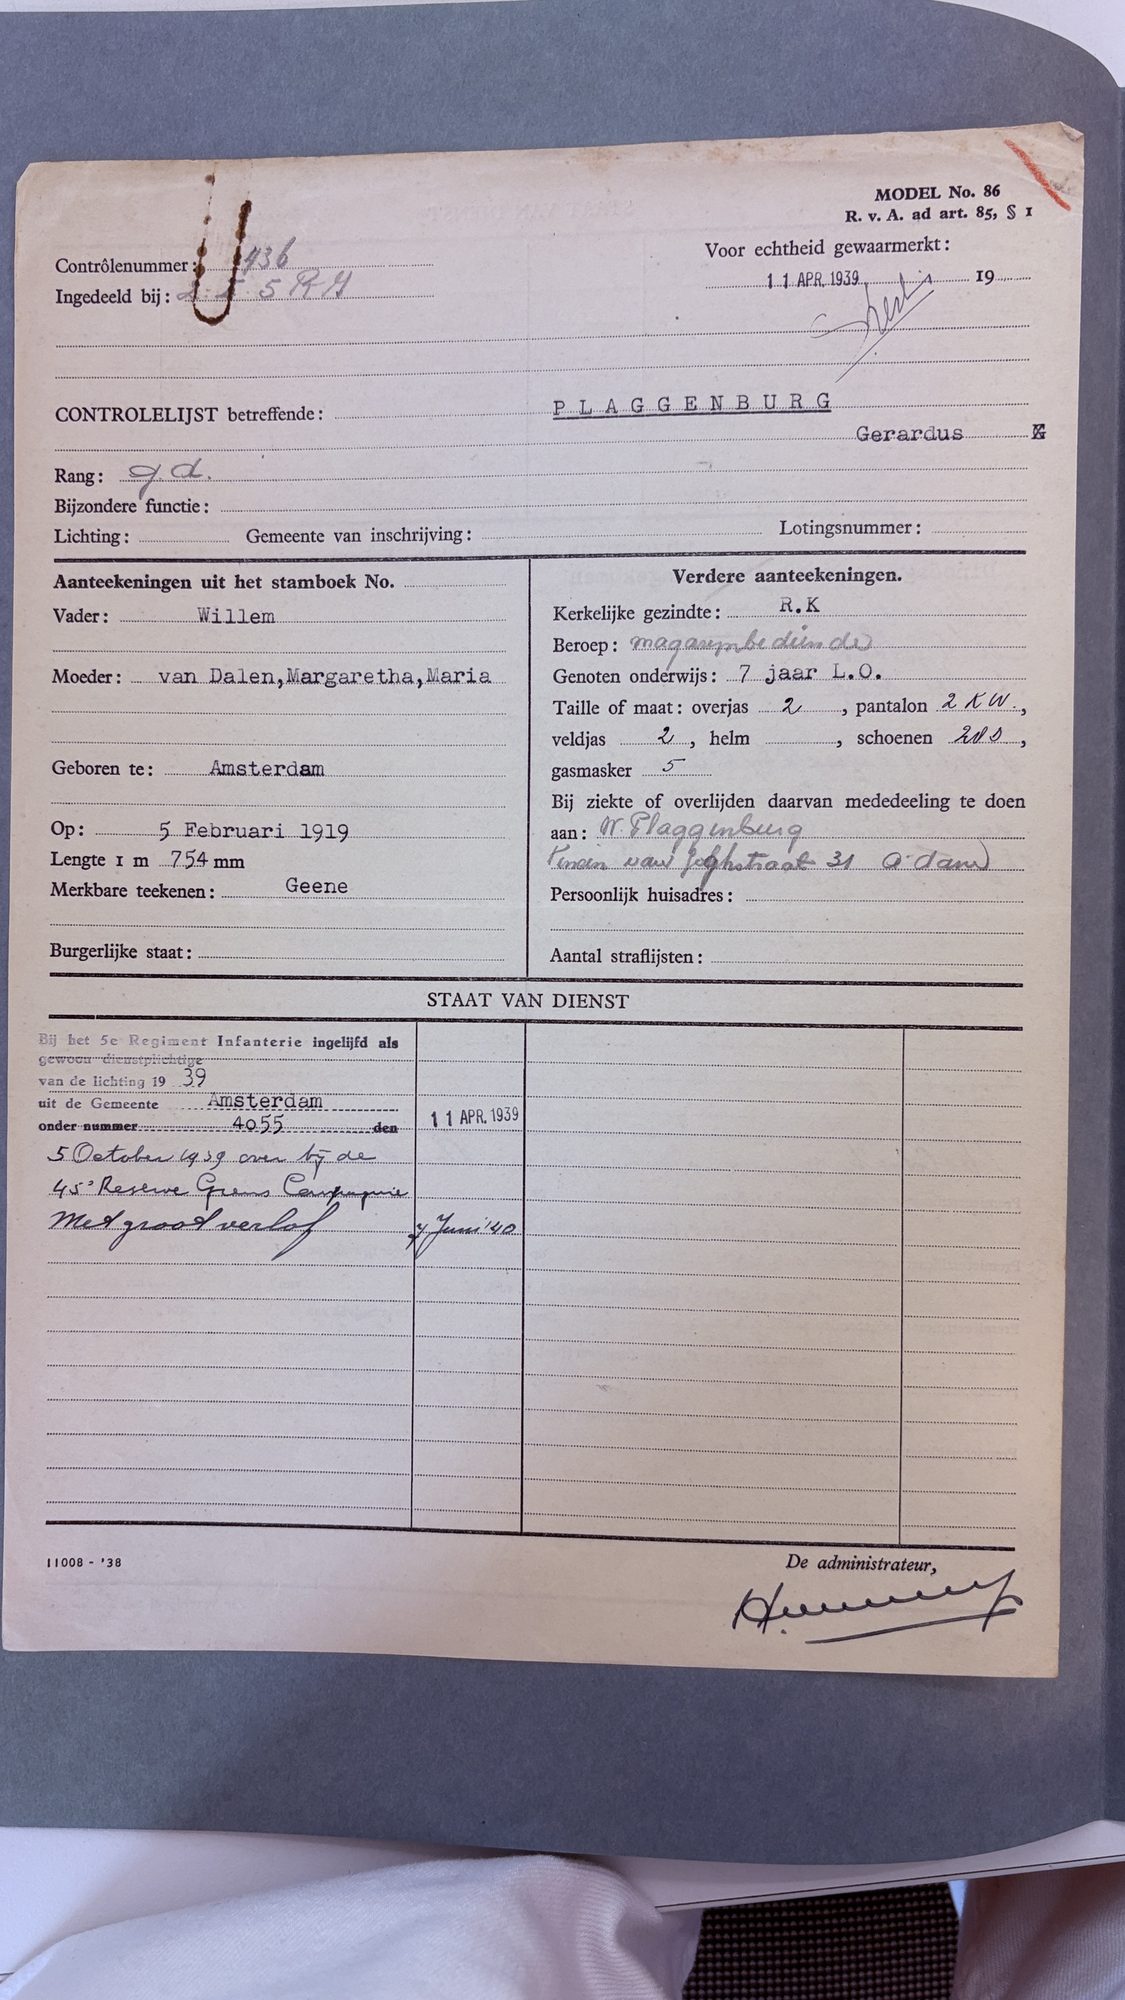 MODEL No. 86
R. v. A. ad art. 85, § 1
Contrôlenummer: 436
Voor echtheid gewaarmerkt:
11 APR. 1939 19
Ingedeeld bij: 5 R
CONTROLELIJST betreffende: PLAGGENBURG
Gerardus
Rang: g.d.
Bijzondere functie:
Lichting: Gemeente van inschrijving: Lotingsnummer:
Aanteekeningen uit het stamboek No.
Vader: Willem
Moeder: van Dalen,Margaretha,Maria
Geboren te: Amsterdam
Op: 5 Februari 1919
Lengte 1 m 754 mm
Merkbare teekenen: Geene
Burgerlijke staat:
Verdere aanteekeningen.
Kerkelijke gezindte: R.K
Beroep: magazijnbediende
Genoten onderwijs: 7 jaar L.O.
Taille of maat: overjas 2, pantalon 2 KW.,
veldjas 2, helm , schoenen ,
gasmasker 5
Bij ziekte of overlijden daarvan mededeeling te doen
aan: W. Plaggenburg
van straat 31 A'dam
Persoonlijk huisadres:
Aantal straflijsten:
STAAT VAN DIENST
Bij het 5e Regiment Infanterie ingelijfd als
gewoon dienstplichtige
van de lichting 1939
uit de Gemeente Amsterdam
onder nummer 4055 den 11 APR. 1939
5 October 1939 over bij de
45e Reserve Grens Compagnie
Met groot verlof 7 Juni '40
11008 - '38
De administrateur,